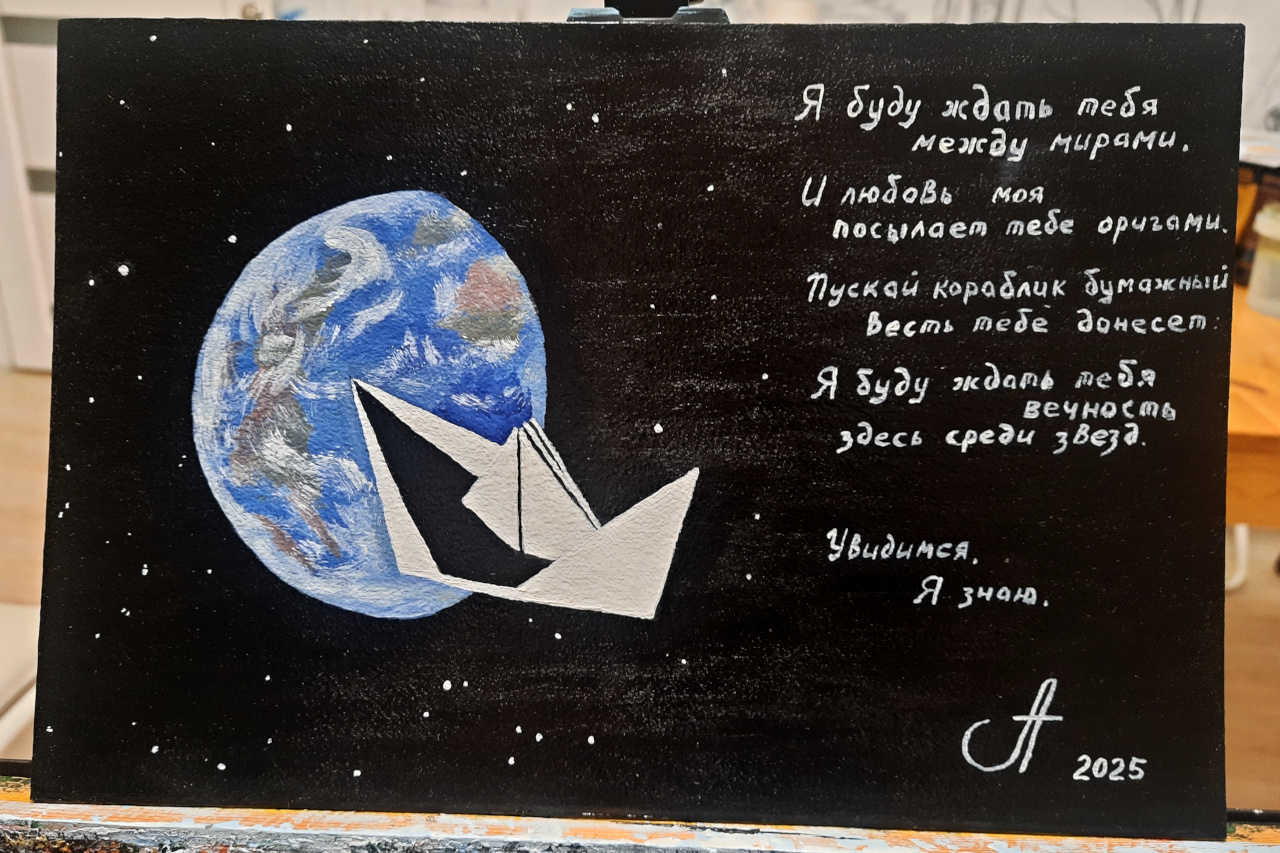 Я буду ждать тебя
между мирами.
И любовь моя
посылает тебе оригами.
Пускай кораблик бумажный
весть тебе донесет:
Я буду ждать тебя
вечность
здесь среди звезд.
Увидимся,
Я знаю.
А
2025